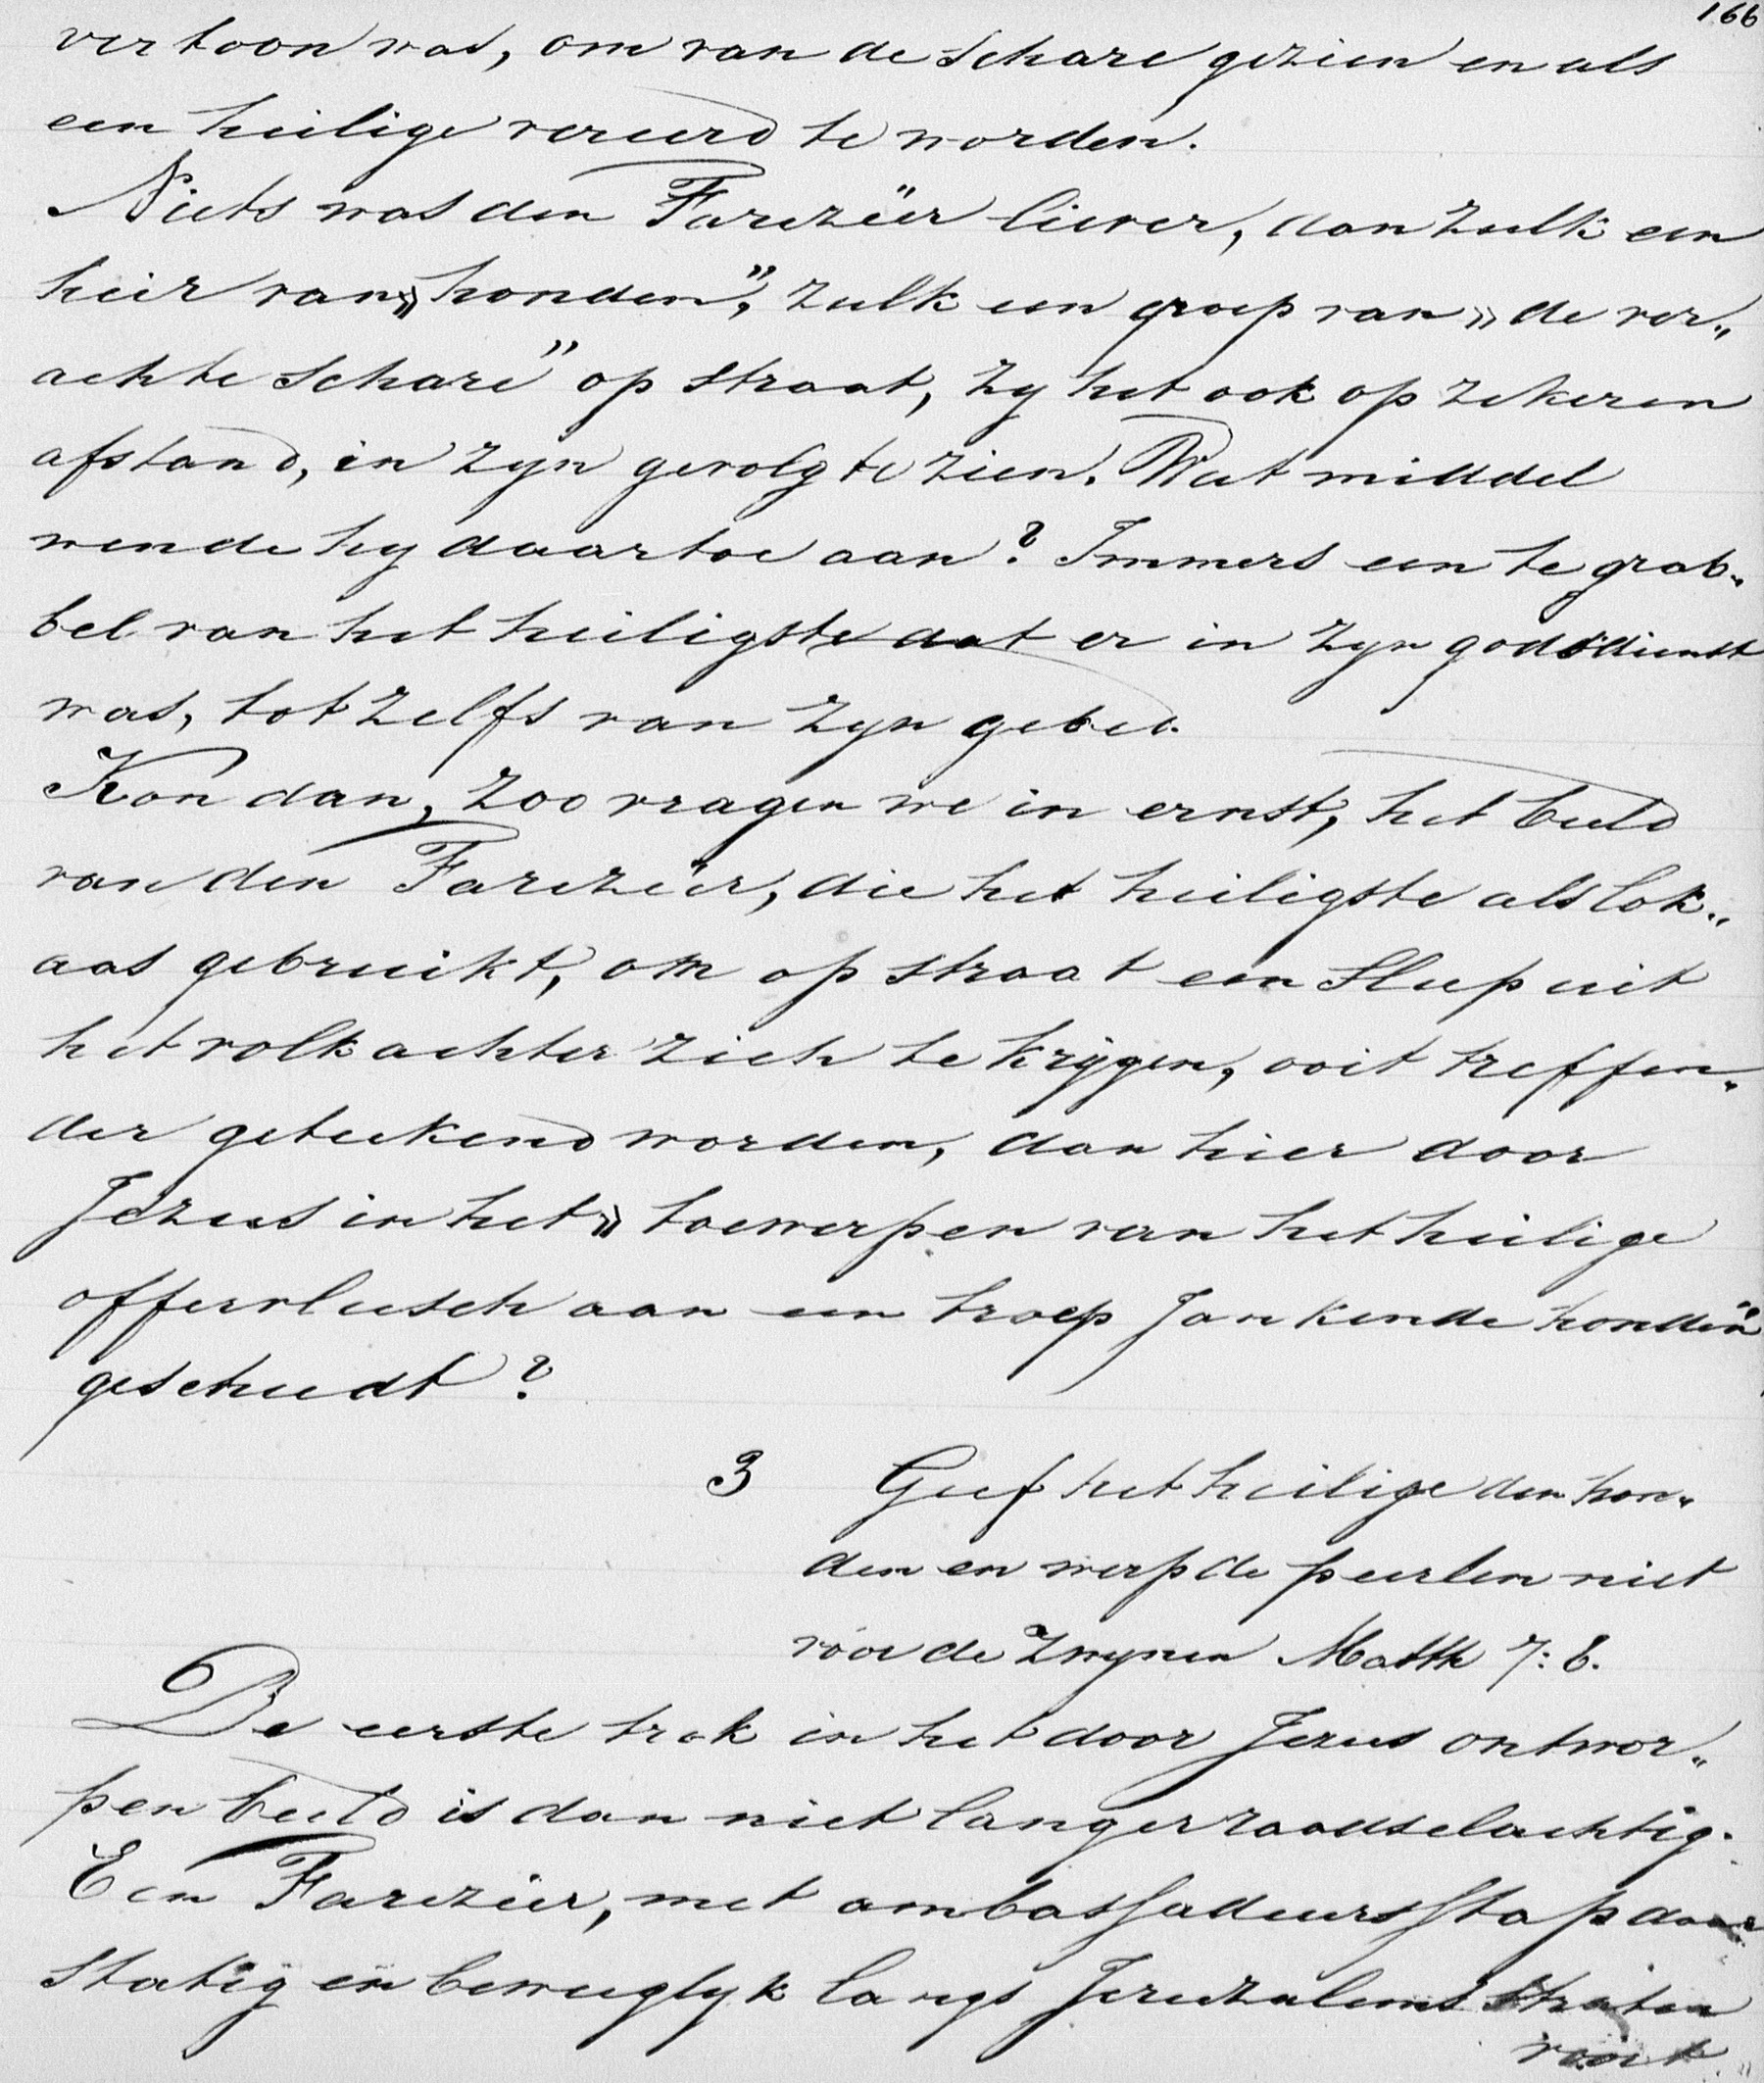 166
vertoon was, om van de schare gezien en als
een heilige vereerd te worden.
Niets was den Farizeër liever, dan zulk een
heir van „honden”, zulk een groep van „de ver„
achte schare” op straat, zy het ook op zekeren
afstand, in zyn gevolg te zien. Wat middel
wende hy daartoe aan? Immers een te grab„
bel van het heiligste dat er in zyn godsdienst
was, tot zelfs van zyn gebed.
Kon dan, zoo vragen we in ernst, het beeld
van den Farizeër, die het heiligste als lok„
aas gebruikt, om op straat een sleep uit
het volk achter zich te krijgen, ooit treffen„
der geteekend worden, dan hier door
Jezus in het „toewerpen van het heilige
offervleesch aan een troep jankende honden”
geschiedt?
3 Geef het heilige den hon„
den en werp de peerlen niet
voor de zwynen Matth 7:6.
De eerste trek in het door Jezus ontwor„
pen beeld is dan niet langer raadselachtig.
Een Farizeër, met ambassadeursstap daar
statig en beweeglyk langs Jeruzalems straten